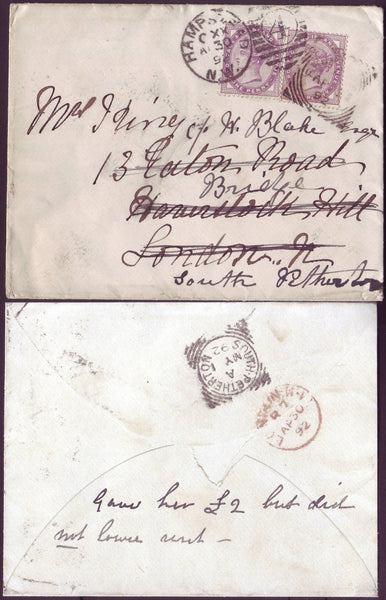 HAMPSTEAD
N.W
Mrs Irine c/o W. Blake Esqr
13 Eaton Road
Bridge
Haverstock Hill
London. N
South Petherton
SOUTH-PETHERTON
A
MY 1
92
AP 30
92
Gave her £2 but did
not lower rent –